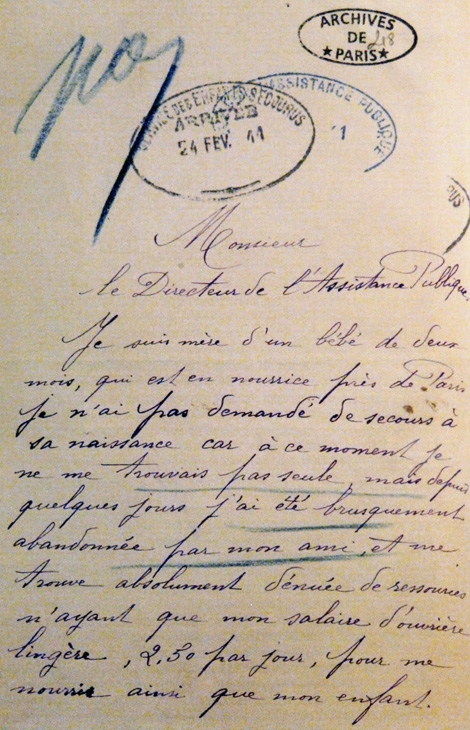 ARCHIVES
DE
PARIS
ASSISTANCE PUBLIQUE
SERVICE DES ENFANTS SECOURUS
ARRIVÉE
24 FEV. 11
Monsieur
le Directeur de l'Assistance Publique.
Je suis mère d'un bébé de deux
mois, qui est en nourrice près de Paris
je n'ai pas demandé de secours à
sa naissance car à ce moment je
ne me trouvais pas seule, mais depuis
quelques jours j'ai été brusquement
abandonnée par mon ami, et me
trouve absolument dénuée de ressources
n'ayant que mon salaire d'ouvrière
lingère, 2,50 par jour, pour me
nourrir ainsi que mon enfant.